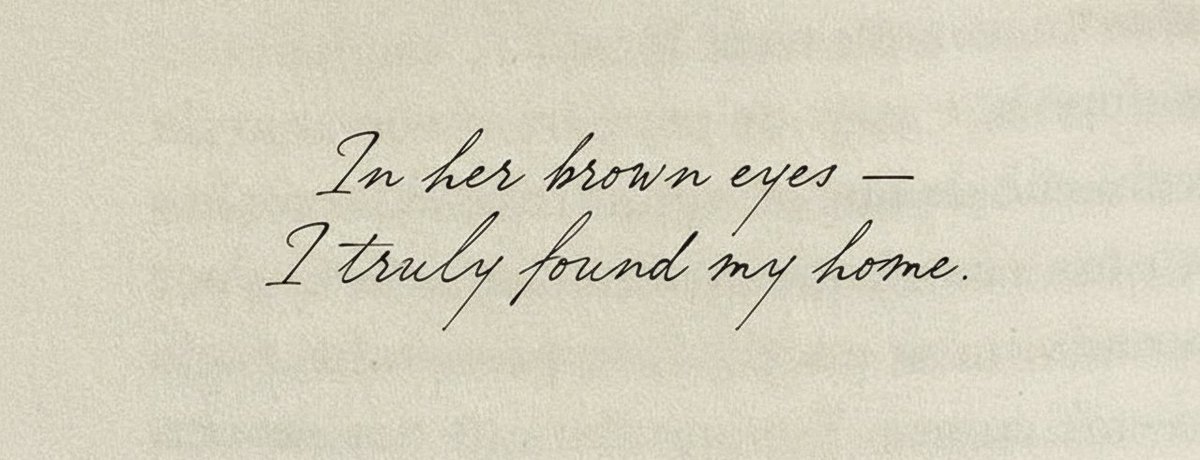 In her brown eyes —
I truly found my home.